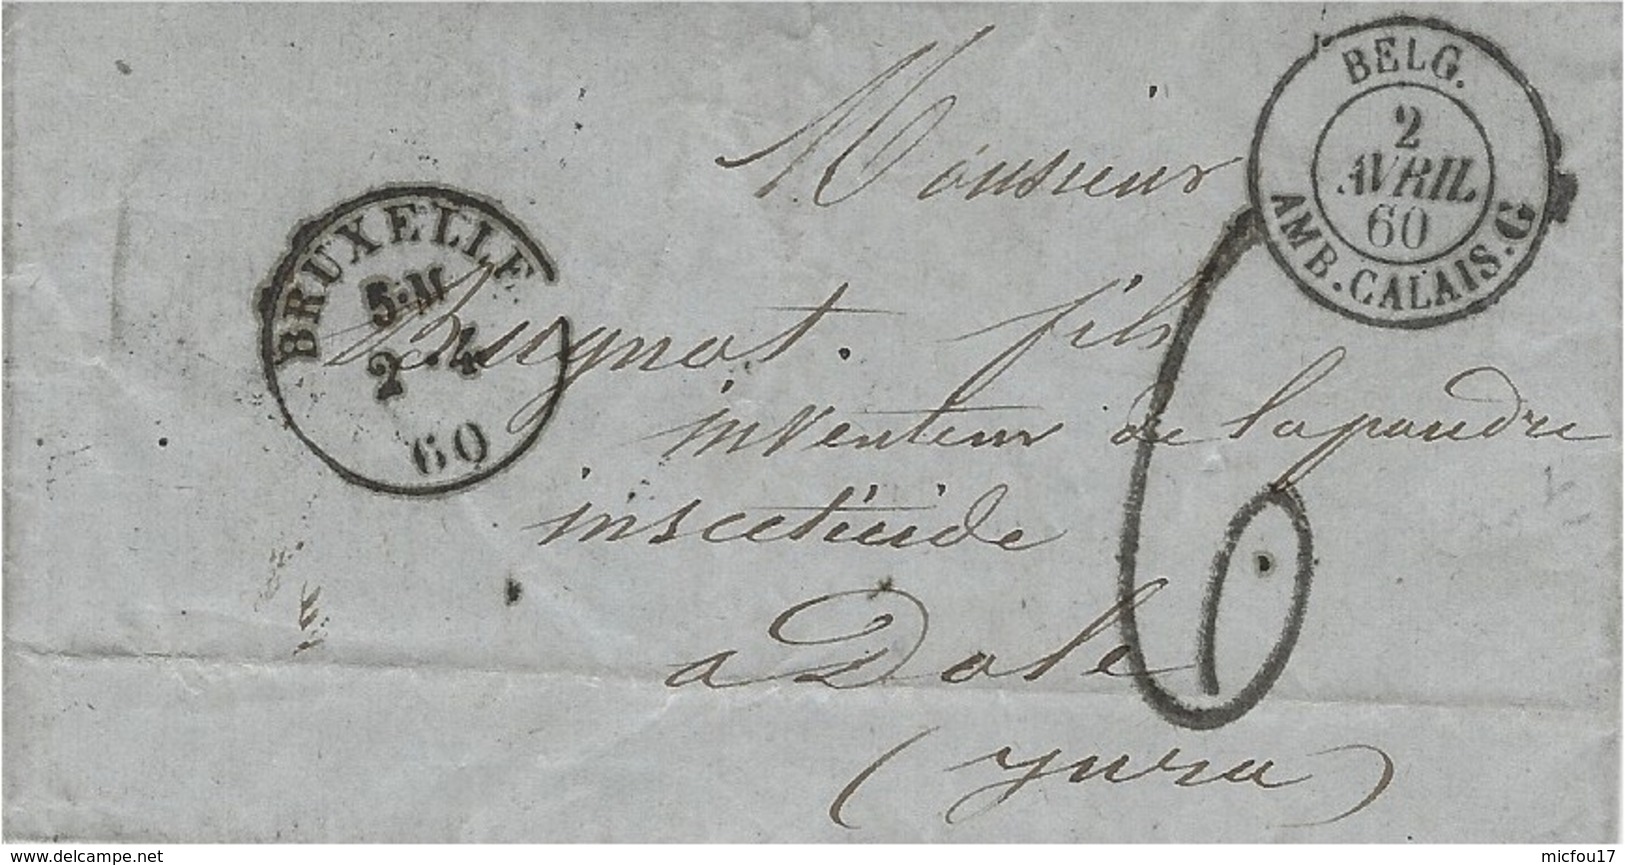 BELG.
2
AVRIL
60
AMB. CALAIS. G
BRUXELLE
5·M
2 4
60
Monsieur
fils
inventeur de la poudre
insecticide
a Dole
(yura)
6
www.delcampe.net
micfou17